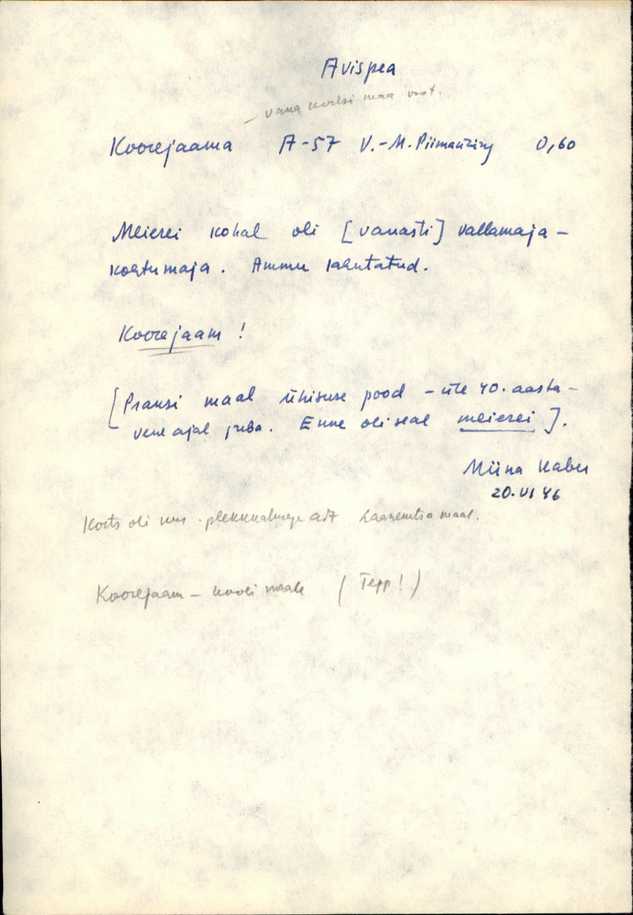 Avispea
– vana kortsi maa vast.
Koorejaama A-57 V.-M. Piimaühing 0,60
Meierei kohal oli [vanasti] vallamaja –
kohtumaja. Ammu lahutatud.
Koorejaam!
[Pransi maal ühisuse pood – üle 40. aasta –
vene ajal juba. Enne oli seal meierei].
Miina Kaber
20. VI 86
Korts oli uus - ait maal.
Koorejaam – kooli maale (Tepp!)